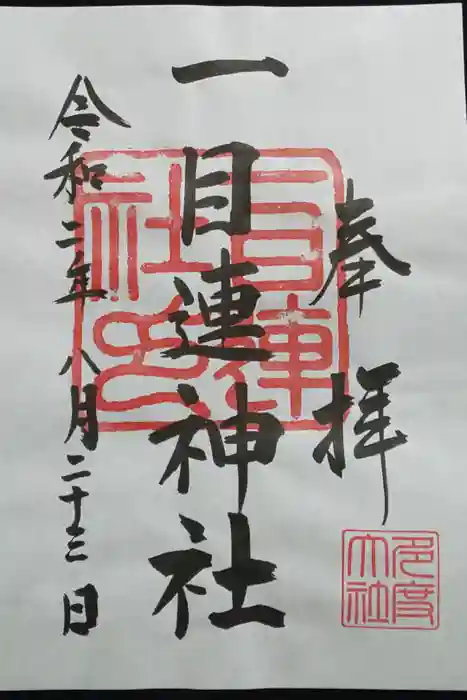 奉拝
一目連神社
令和二年八月二十三日
一目連
社印
多度
大社